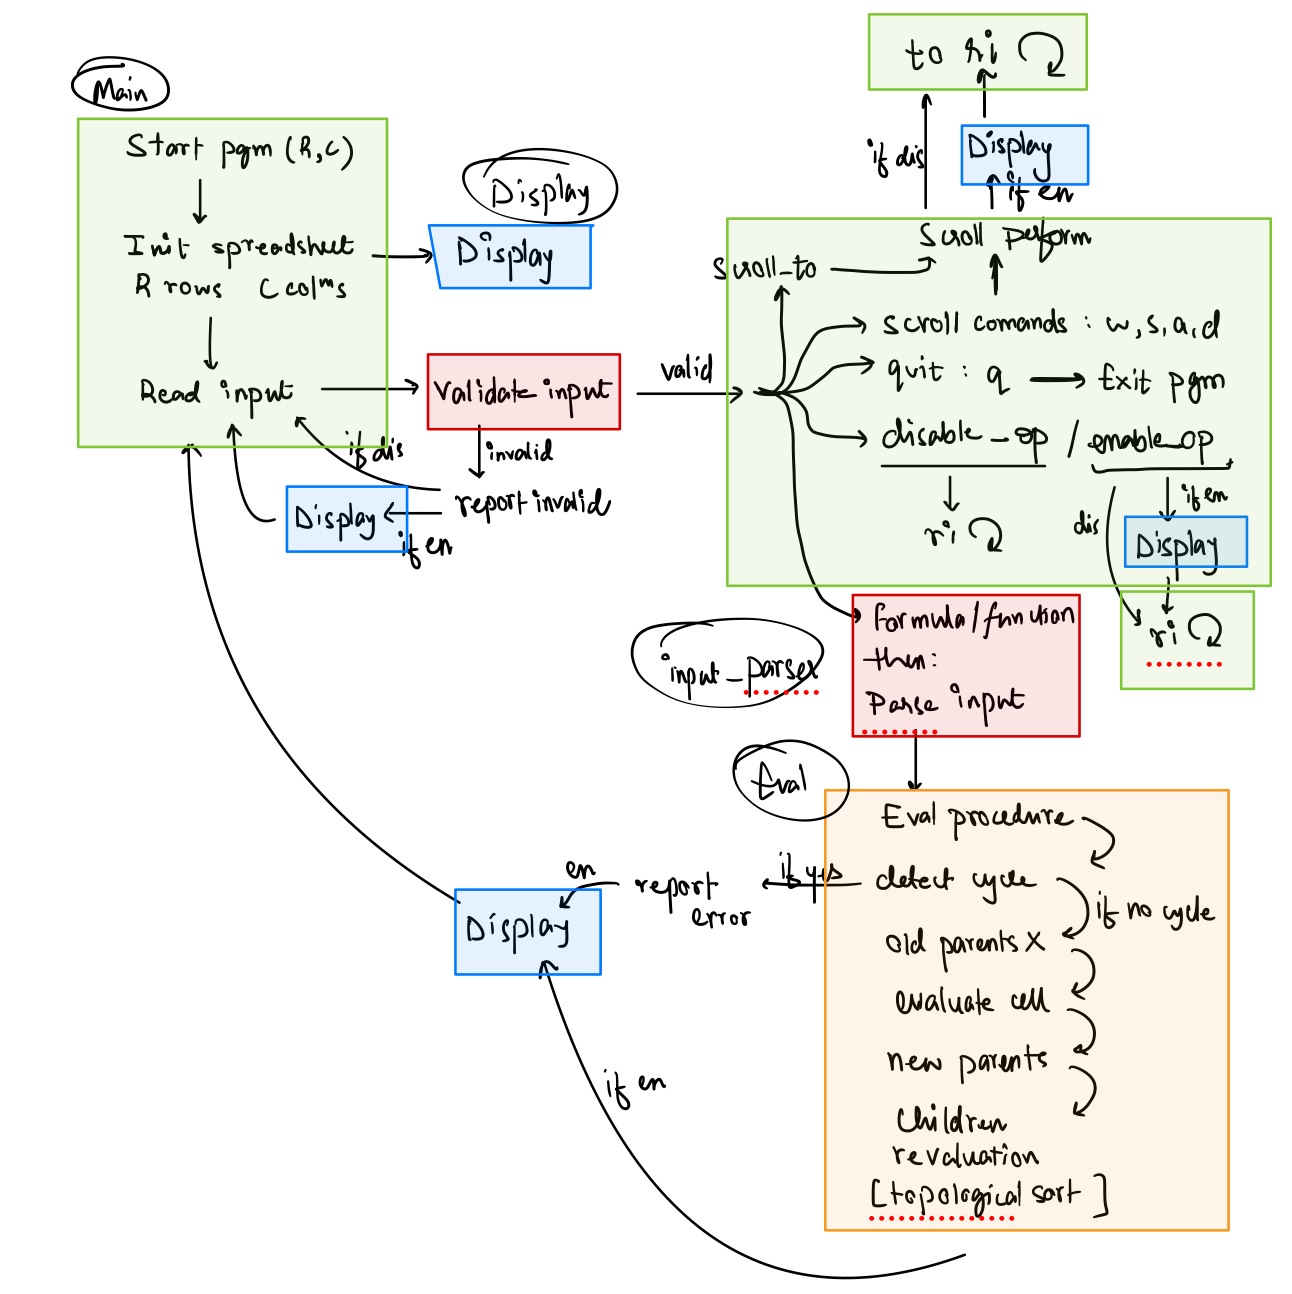 Main
Start pgm (R,C)
Init spreadsheet
R rows C colms
Read input
Display
Display
validate input
valid
invalid
report invalid
if dis
Display
if en
to ri
if dis
Display
if en
Scroll perform
scroll_to
scroll comands : w,s,a,d
quit : q → Exit pgm
disable_op / enable_op
ri
dis
if en
Display
ri
input_parser
formula/function
then:
Parse input
Eval
Eval procedure
detect cycle
if no cycle
if yes
report
error
en
Display
old parents X
evaluate cell
new parents
Children
revaluation
[topological sort]
if en